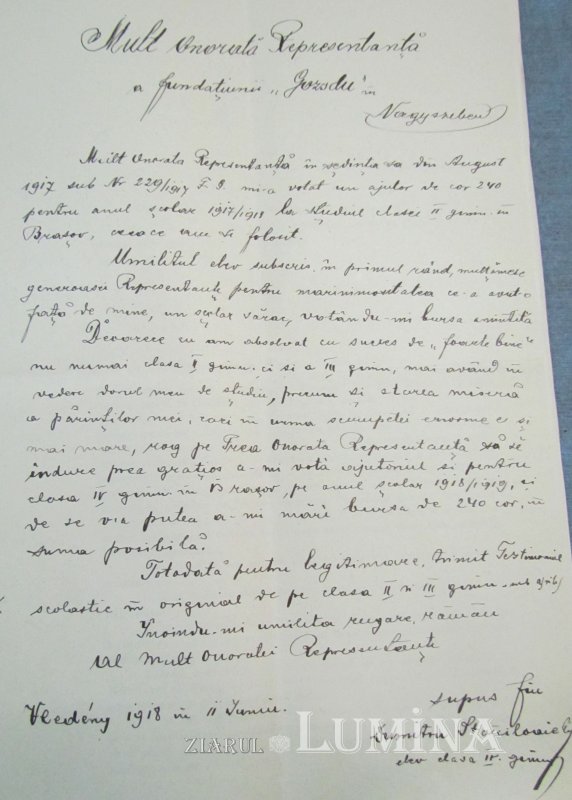 Mult Onorată Representanță
a fundațiunii „Gozsdu" în
Nagyszeben
Mult Onorata Representanță în ședința sa din August
1917 sub Nr 229/1917 F. G. mi-a votat un ajutor de cor 240
pentru anul școlar 1917/1918 la studiul clasei II gimn. în
Brașov, ceeace am și folosit.
Umilitul elev subscris în primul rând, mulțămesc
generoasei Representanțe pentru marinimositatea ce-a avut-o
față de mine, un școlar sărac, votându-mi bursa amintită
Deoarece eu am absolvat cu succes de „foarte bine"
nu numai clasa II gimn. ci și a III gimn, mai având în
vedere dorul meu de studiu, precum și starea miseră
a părinților mei, cari în urma scumpetei enorme e și
mai mare, rog pe Prea Onorata Representanță să se
îndure prea grațios a-mi votă ajutoriul și pentru
clasa IV gimn. în Brașov, pe anul școlar 1918/1919, și
de se va putea a-mi mări bursa de 240 cor, în
suma posibilă.
Totodată pentru legitimare, trimit Testimoniul
scolastic în original de pe clasa II și III gimn. sub
Înoindu-mi umilita rugare, rămân
al Mult Onoratei Representanțe
supus fiu
Vledény 1918 în 11 Iuniu.
Dumitru
elev clasa IV. gimn
ZIARUL LUMINA